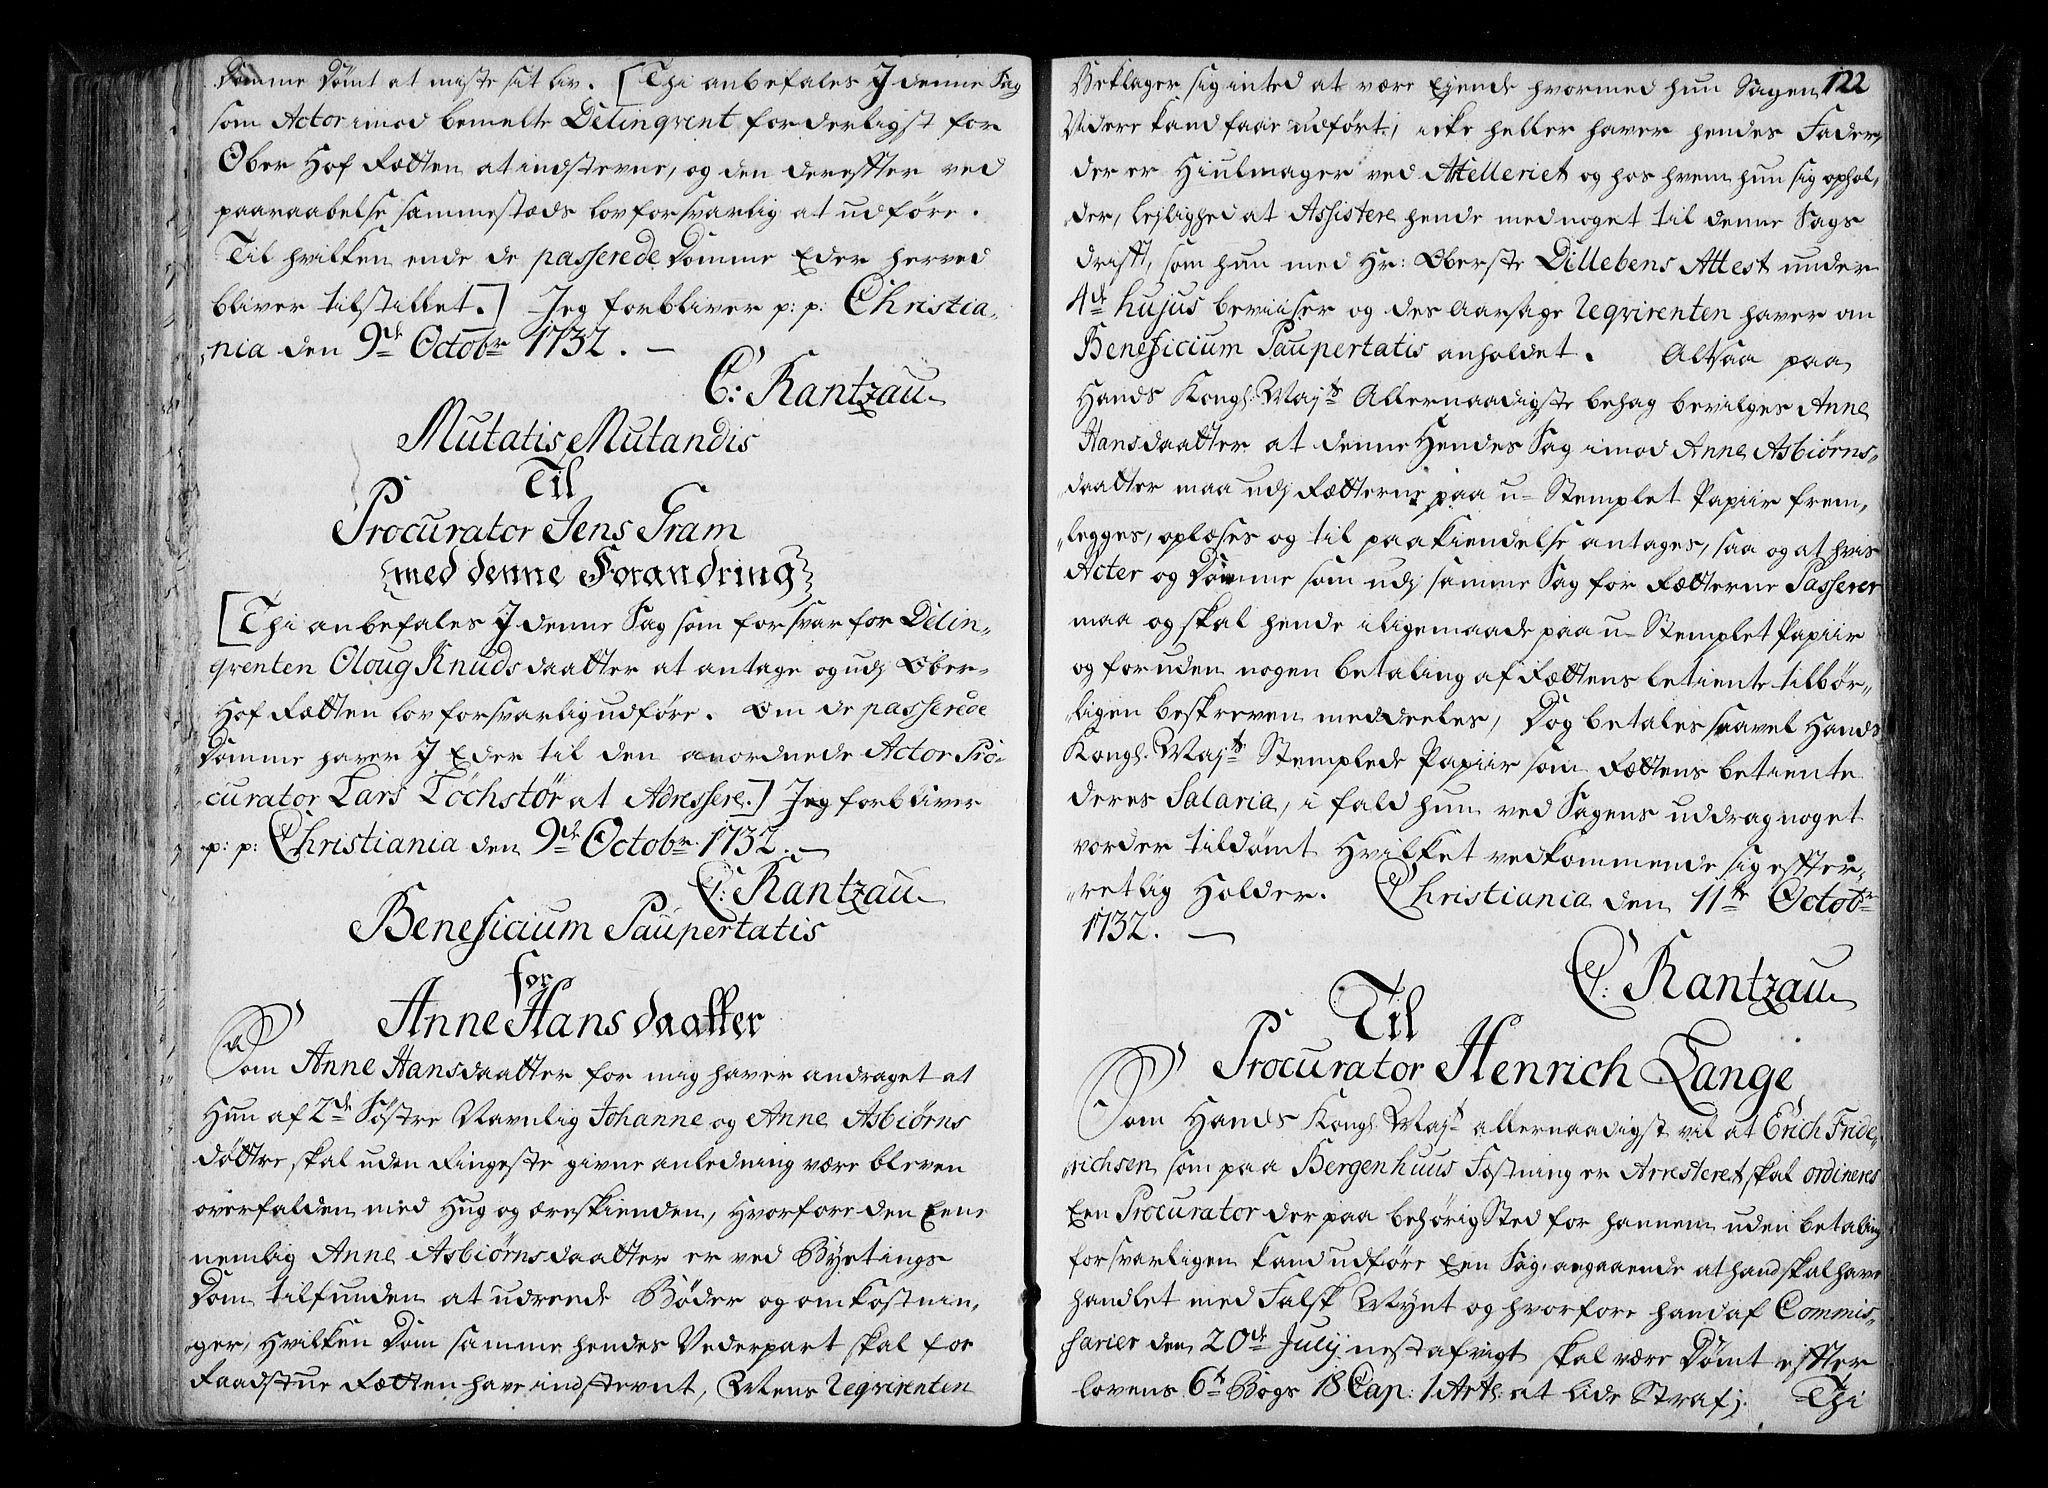 Domme Dømt at miste sit liv. [Thi anbefales I denne Sag
som Actor imod bemelte Delinqvent forderligst for
Ober Hof Rætten at indstevne, og den derefter ved
paaraabelse sammestæds lovforsvarlig at udføre.
Til hvilken ende de passerede Domme Eder herved
bliver tilstillet.] Jeg forbliver p: p: Christia,
,nia den 9de Octobr 1732. —
C: Rantzau
Mutatis Mutandis
Til
Procurator Jens Gram
med denne Forandring
[Thi anbefales I denne Sag som forsvar for Delin„
qventen Oloug Knuds daatter at antage og udj Ober„
Hof Rætten lovforsvarlig udføre. Om de passerede
Domme haver I Eder til den anordnede Actor Pro„
curator Lars Löchstör at Adressere.] Jeg forbliver
p: p: Christiania den 9de Octobr 1732. —
C: Rantzau
Beneficium Paupertatis
for
Anne Hans daatter
Som Anne Hansdaatter for mig haver andraget at
Hun af 2de Søstre Navnlig Johanne og Anne Asbiørns
døttre skal uden Ringeste givne anledning være bleven
overfalden med Hug og æreskienden, hvorfore den Eene
nemlig Anne Asbiørnsdaatter er ved Byetings
Dom tilfunden at udreede Bøder og omkostnin,
ger, hvilken Dom samme hendes Vederpart skal for
Raadstue Rætten have indstevnt, Mens Reqvirenten
122
Beklager sig inted at være Ejende hvormed hun Sagen
Videre kand faae udført, icke heller haver hendes Fader,
der er Hiulmager ved Attelleriet og hos hvem hun sig ophol,
der, lejlighed at Assistere hende med noget til denne Sags
drift, som hun med Hr: Oberste Dillebens Attest under
4de hujus beviiser og des Aarsage Reqvirenten haver om
Beneficium Paupertatis anholdet. Altsaa paa
Hands Kongl. Mayts Allernaadigste behag bevilges Anne
Hansdaatter at denne Hendes Sag imod Anne Asbiørns„
daatter maa udj Rætterne paa u- Stemplet Papiir frem,
„legges, oplæses og til paakiendelse antages, saa og at hvis
Acter og Domme som udj samme Sag for Rætterne Passerer
maa og skal hende iligemaade paa u- Stemplet Papiir
og foruden nogen betaling af Rættens betiente tilbør„
„ligen beskreven meddeeles, Dog betales saavel Hands
Kongl. Mayts Stemplede Papiir som Rættens betiente
deres Salaria, i fald hun ved Sagens uddrag noget
vorder tildømt. Hvilket vedkommende sig efter„
„retlig Holder. Christiania den 11te Octobr
1732. —
C: Rantzau
Til
Procurator Henrich Lange
Som Hands Kongl. Mayt allernaadigst vil at Erich Fride„
„richsen som paa Bergenhuus Fæstning er Arresteret skal ordineres
Een Procurator der paa behørig Sted for hannem uden betaling
forsvarligen kand udføre Een Sag, angaaende at hand skal have
handlet med Falsk Mynt og hvorfore hand af Commis„
sarier den 20de Julij nestafvigt skal være Dømt efter
lovens 6te Bogs 18 Cap: 1 Artl. at lide Straf; Thi